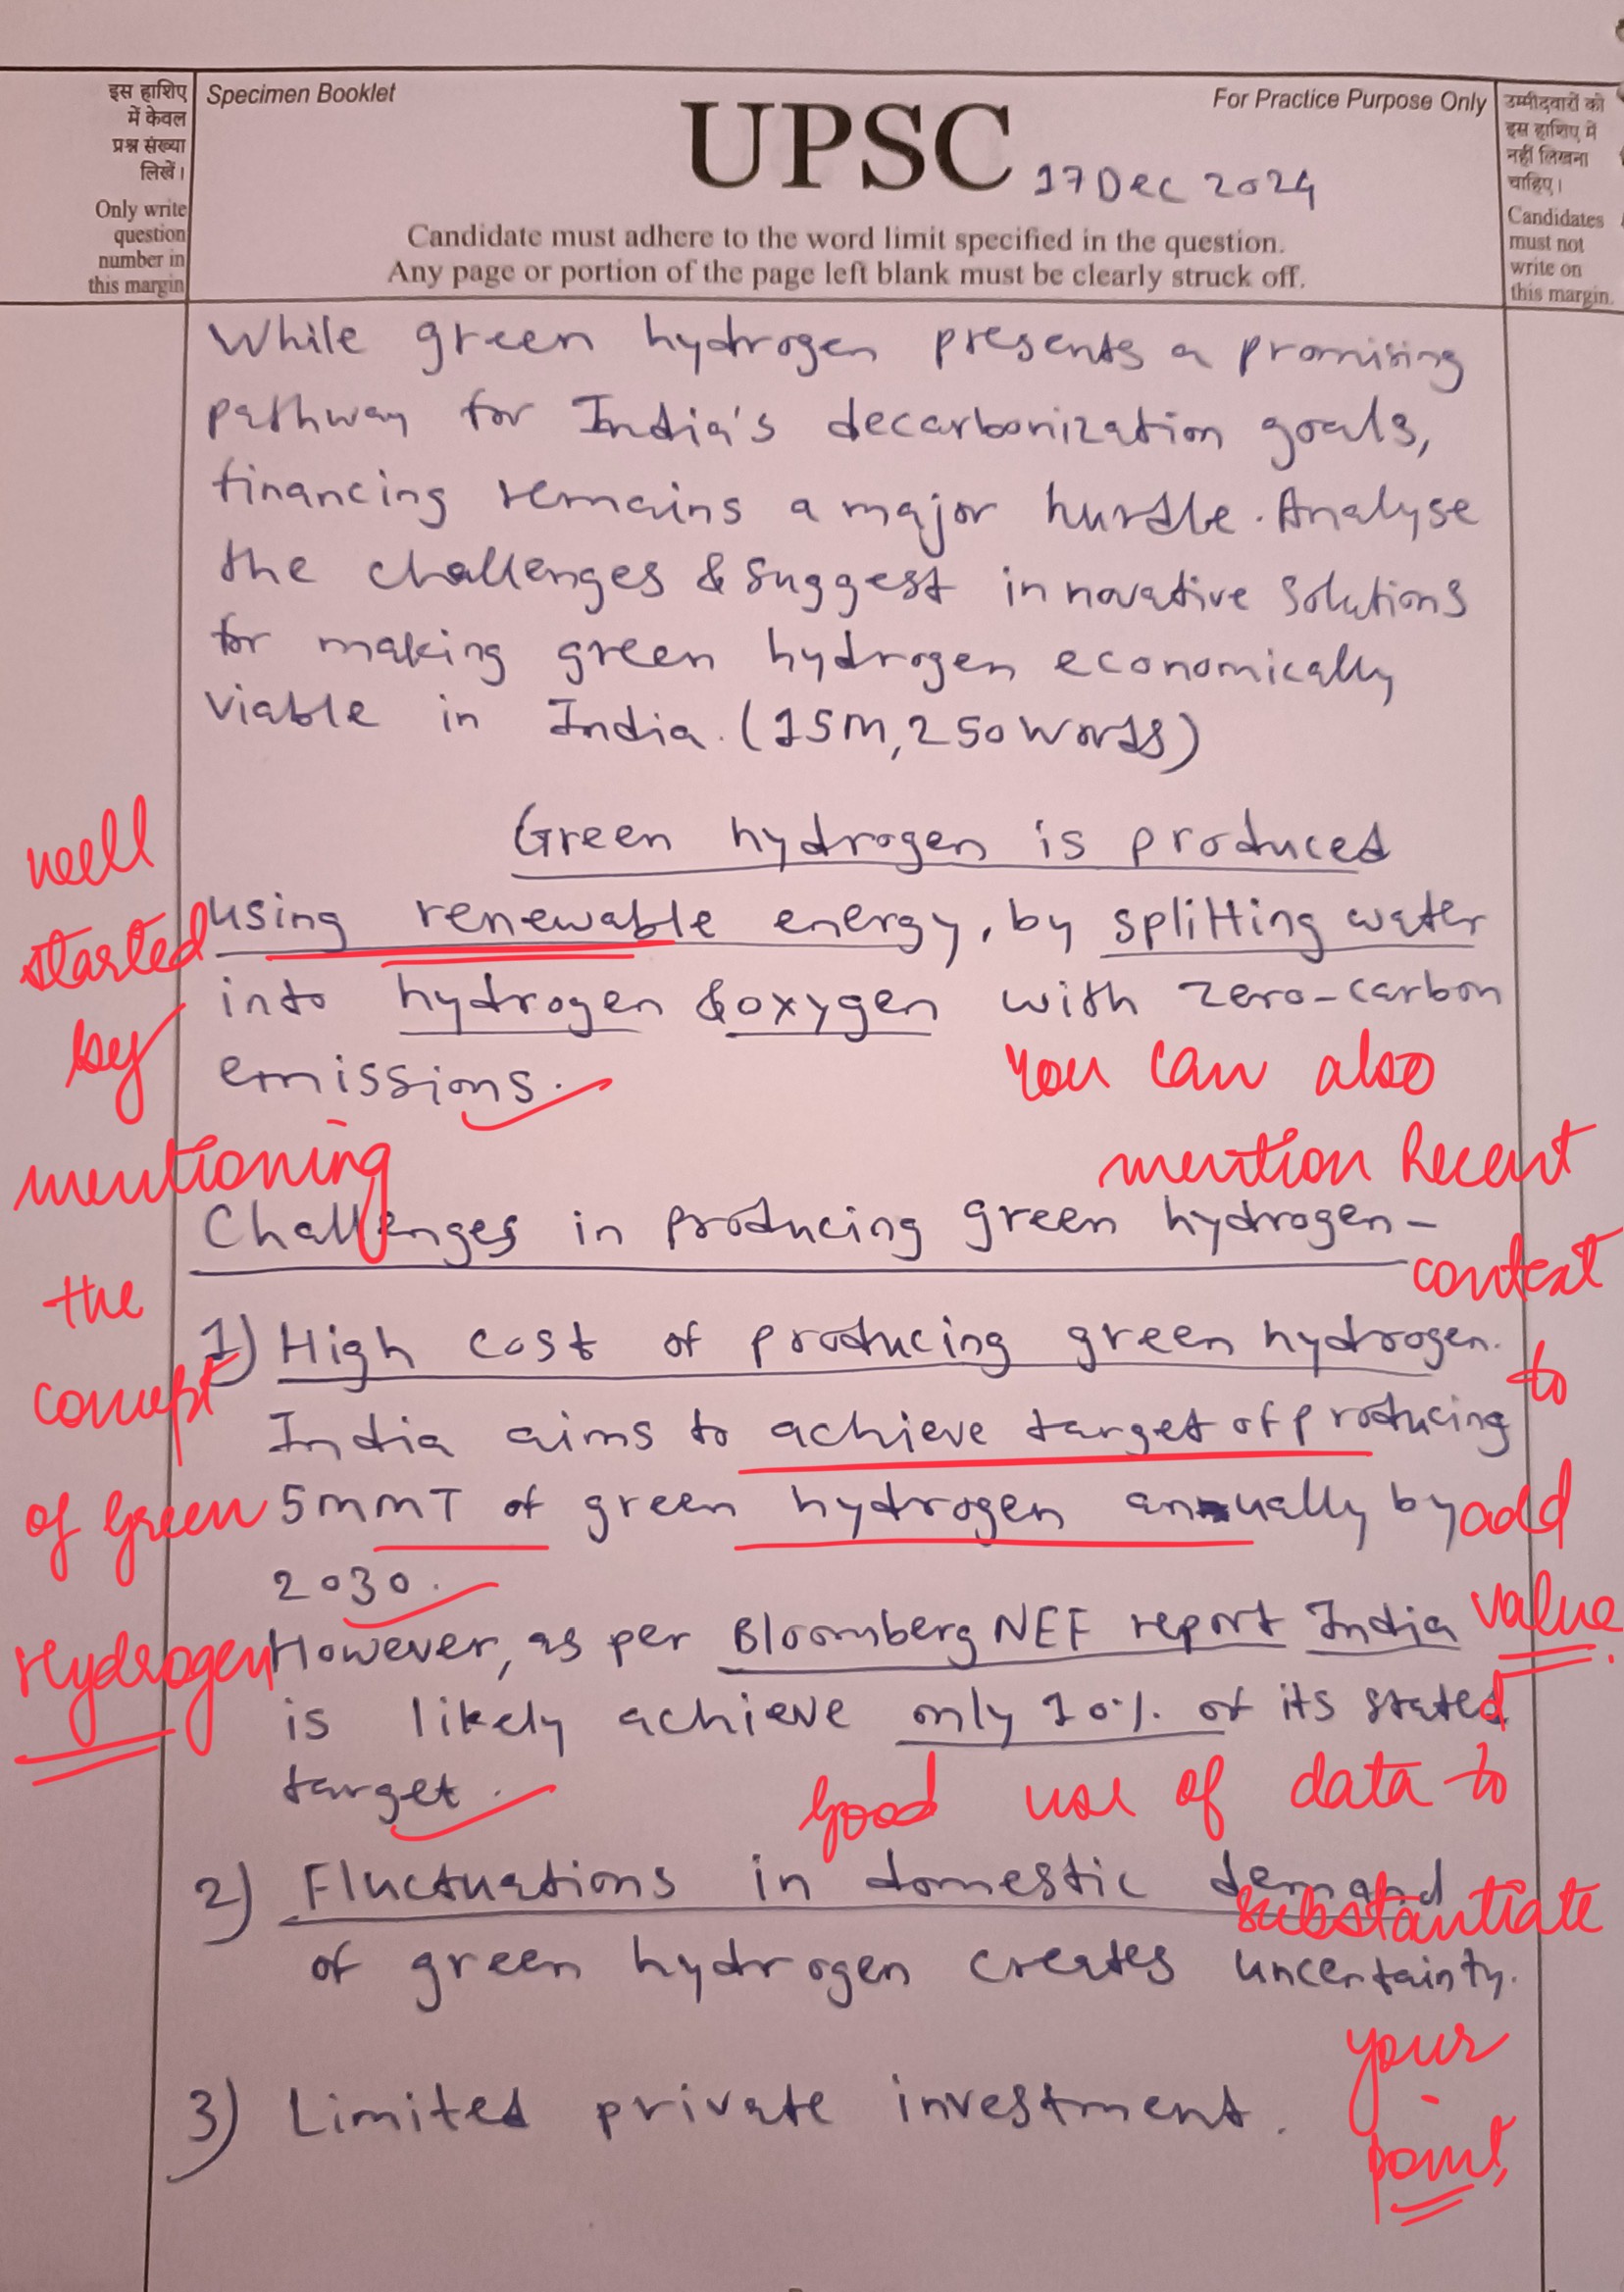 इस हाशिए
में केवल
प्रश्न संख्या
लिखें।
Only write
question
number in
this margin
Specimen Booklet
UPSC
For Practice Purpose Only
17 Dec 2024
Candidate must adhere to the word limit specified in the question.
Any page or portion of the page left blank must be clearly struck off.
उम्मीदवारों को
इस हाशिए में
नहीं लिखना
चाहिए।
Candidates
must not
write on
this margin.
While green hydrogen presents a promising
pathway for India's decarbonization goals,
financing remains a major hurdle. Analyse
the challenges & suggest innovative solutions
for making green hydrogen economically
viable in India. (15M, 250 words)
Green hydrogen is produced
using renewable energy, by splitting water
into hydrogen & oxygen with zero-carbon
emissions.
well
started
by
mentioning
the
concept
of Green
Hydrogen
You can also
mention Recent
context
to
add
value.
Challenges in producing green hydrogen-
1) High cost of producing green hydrogen.
India aims to achieve target of producing
5 MMT of green hydrogen annually by
2030.
However, as per Bloomberg NEF report India
is likely achieve only 10% of its stated
target.
Good use of data to
substantiate
your
point,
2) Fluctuations in domestic demand
of green hydrogen creates uncertainty.
3) Limited private investment.